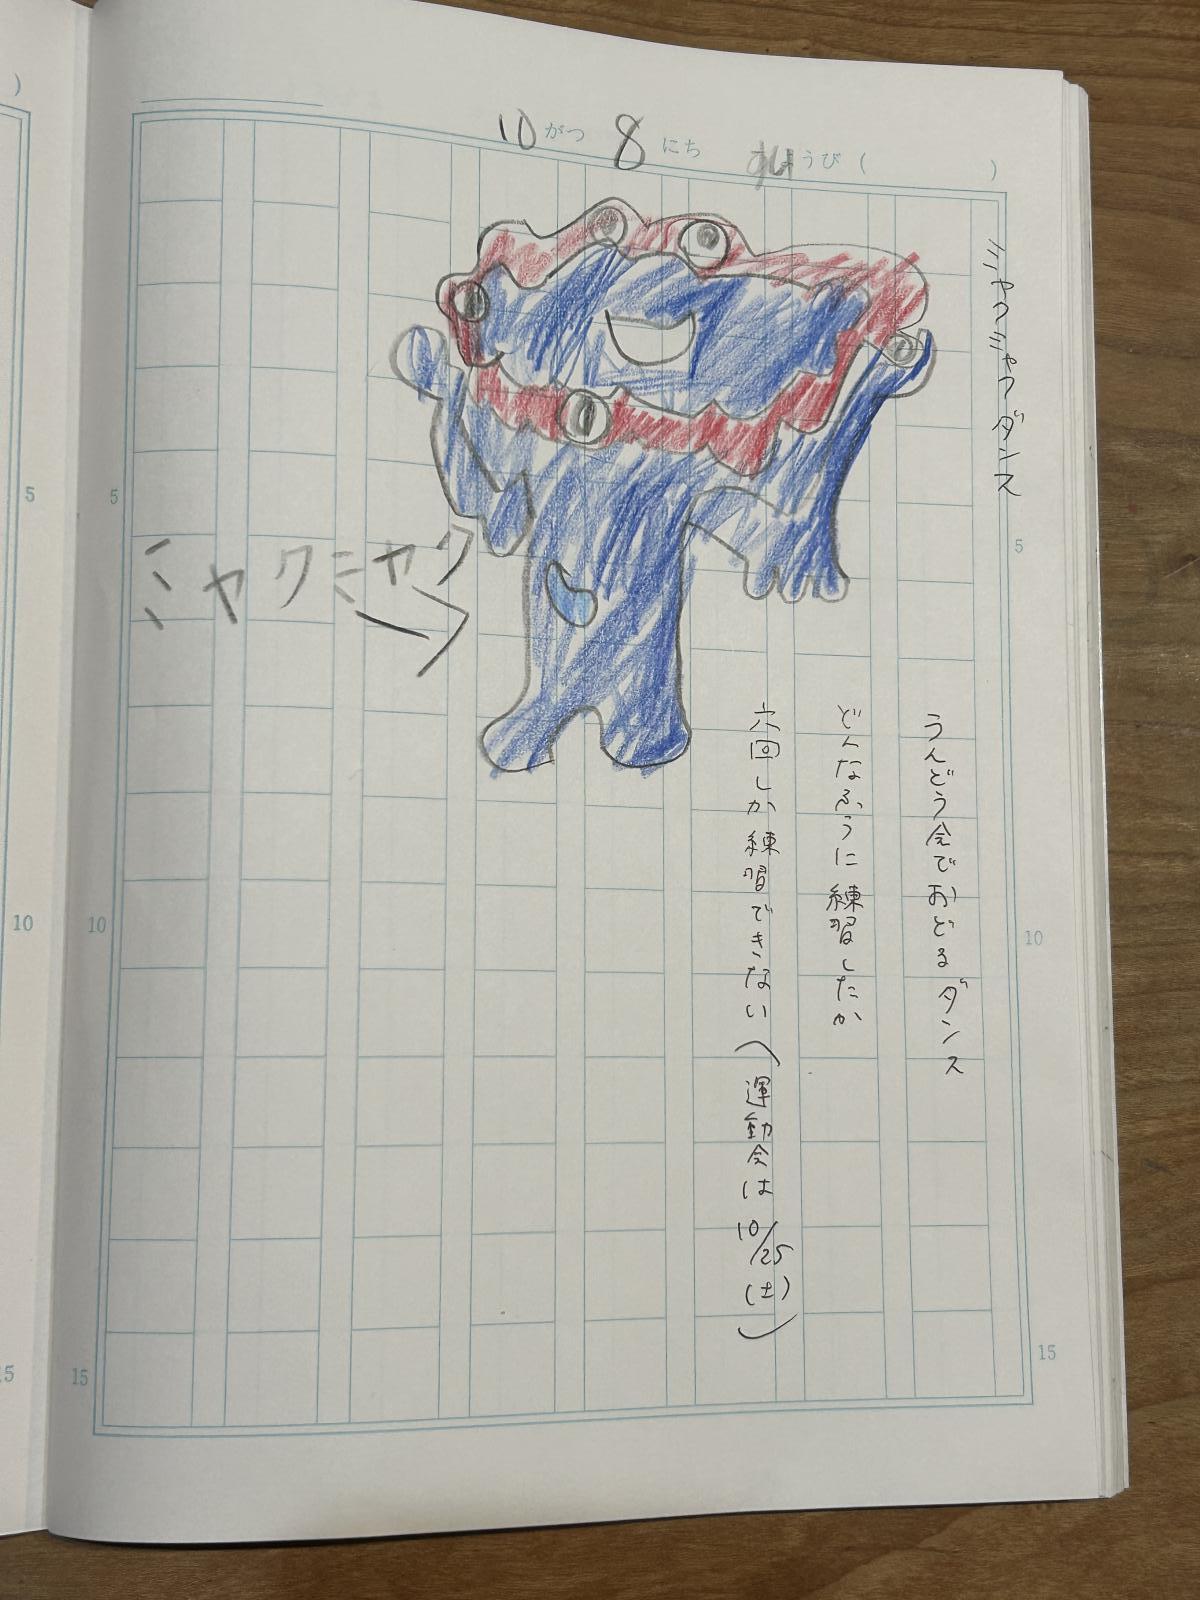 10がつ 8にち うび( )
ミャクミャクダンス
うんどう会でおどるダンス
どんなふうに練習したか
六回しか練習できない(運動会は10/25(土))
ミャクミャク
5
10
15
5
10
15
5
10
)